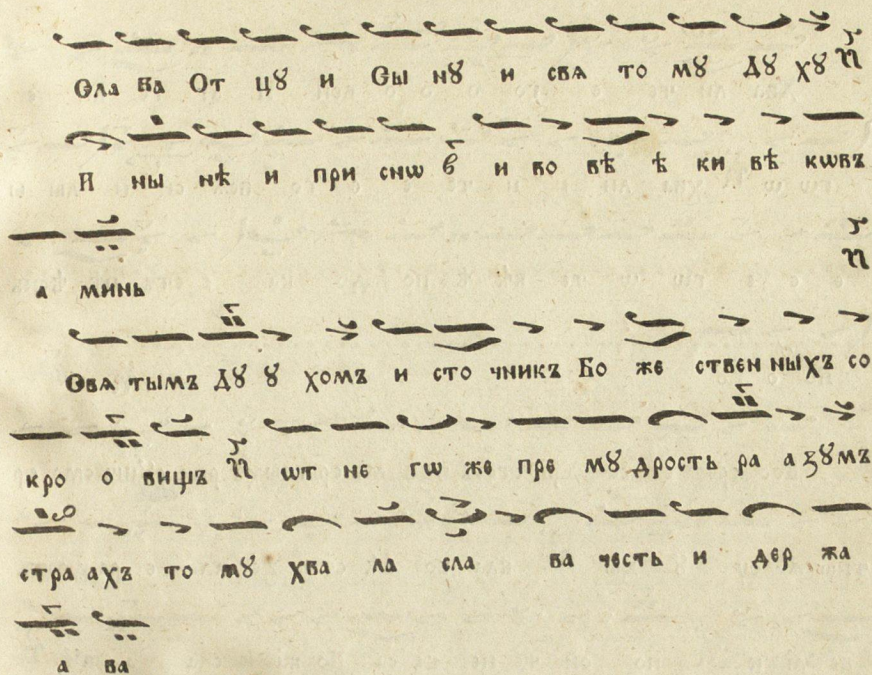 Сла ва От цꙋ и Сы нꙋ и свѧ то мꙋ Дꙋ хꙋ
И ны нѣ и при снѡ и во вѣ ѣ ки вѣ кѡвъ
а минь
Свѧ тымъ Дꙋ ꙋ хомъ и сто чникъ Бо же ствен ныхъ со
кро о вищъ ѡт не гѡ же пре мꙋ дрость ра а зꙋмъ
стра ахъ то мꙋ хва ла сла ва честь и дер жа
а ва